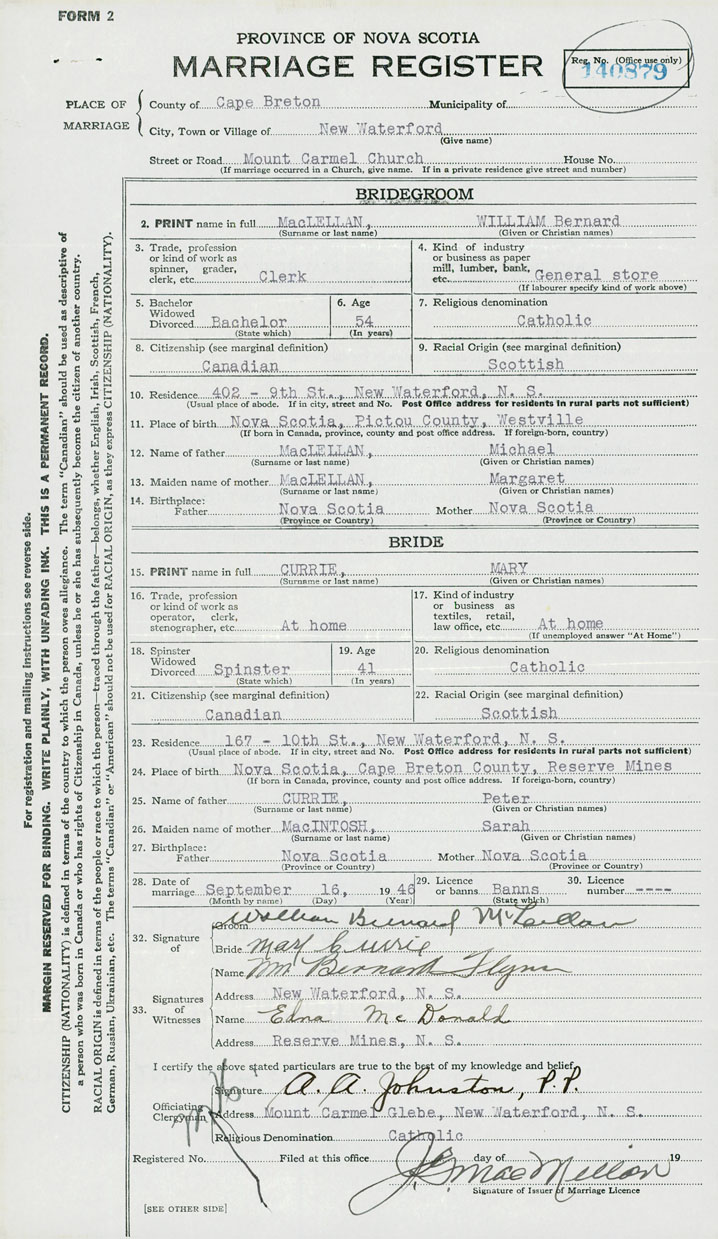 FORM 2
PROVINCE OF NOVA SCOTIA
MARRIAGE REGISTER
Reg. No. (Office use only)
140879
PLACE OF MARRIAGE
County of Cape Breton Municipality of
City, Town or Village of New Waterford
(Give name)
Street or Road Mount Carmel Church House No.
(If marriage occurred in a Church, give name. If in a private residence give street and number)
BRIDEGROOM
2. PRINT name in full MacLELLAN, WILLIAM Bernard
(Surname or last name) (Given or Christian names)
3. Trade, profession or kind of work as spinner, grader, clerk, etc. Clerk
4. Kind of industry or business as paper mill, lumber, bank, etc. General store
(If labourer specify kind of work above)
5. Bachelor Widowed Divorced Bachelor
(State which)
6. Age 54
(In years)
7. Religious denomination
Catholic
8. Citizenship (see marginal definition)
Canadian
9. Racial Origin (see marginal definition)
Scottish
10. Residence 402 - 9th St., New Waterford, N. S.
(Usual place of abode. If in city, street and No. Post Office address for residents in rural parts not sufficient)
11. Place of birth Nova Scotia, Pictou County, Westville
(If born in Canada, province, county and post office address. If foreign-born, country)
12. Name of father MacLELLAN, Michael
(Surname or last name) (Given or Christian names)
13. Maiden name of mother MacLELLAN, Margaret
(Surname or last name) (Given or Christian names)
14. Birthplace:
Father Nova Scotia Mother Nova Scotia
(Province or Country) (Province or Country)
BRIDE
15. PRINT name in full CURRIE, MARY
(Surname or last name) (Given or Christian names)
16. Trade, profession or kind of work as operator, clerk, stenographer, etc. At home
17. Kind of industry or business as textiles, retail, law office, etc. At home
(If unemployed answer "At Home")
18. Spinster Widowed Divorced Spinster
(State which)
19. Age 41
(In years)
20. Religious denomination
Catholic
21. Citizenship (see marginal definition)
Canadian
22. Racial Origin (see marginal definition)
Scottish
23. Residence 167 - 10th St., New Waterford, N. S.
(Usual place of abode. If in city, street and No. Post Office address for residents in rural parts not sufficient)
24. Place of birth Nova Scotia, Cape Breton County, Reserve Mines
(If born in Canada, province, county and post office address. If foreign-born, country)
25. Name of father CURRIE, Peter
(Surname or last name) (Given or Christian names)
26. Maiden name of mother MacINTOSH, Sarah
(Surname or last name) (Given or Christian names)
27. Birthplace:
Father Nova Scotia Mother Nova Scotia
(Province or Country) (Province or Country)
28. Date of marriage September 16, 1946
(Month by name) (Day) (Year)
29. Licence or banns Banns
(State which)
30. Licence number ----
32. Signature of
Groom William Bernard McLellan
Bride Mary Currie
33. Signatures of Witnesses
Name Wm Bernard Flynn
Address New Waterford, N. S.
Name Edna McDonald
Address Reserve Mines, N. S.
I certify the above stated particulars are true to the best of my knowledge and belief
Officiating Clergyman
Signature A. A. Johnston, P.P.
Address Mount Carmel Glebe, New Waterford, N. S.
Religious Denomination Catholic
Registered No. Filed at this office day of 19
MacMillan
Signature of Issuer of Marriage Licence
[SEE OTHER SIDE]
For registration and mailing instructions see reverse side.
MARGIN RESERVED FOR BINDING. WRITE PLAINLY, WITH UNFADING INK. THIS IS A PERMANENT RECORD.
CITIZENSHIP (NATIONALITY) is defined in terms of the country to which the person owes allegiance. The term "Canadian" should be used as descriptive of
a person who was born in Canada or who has rights of Citizenship in Canada, unless he or she has subsequently become the citizen of another country.
RACIAL ORIGIN is defined in terms of the people or race to which the person—traced through the father—belongs, whether English, Irish, Scottish, French,
German, Russian, Ukrainian, etc. The terms "Canadian" or "American" should not be used for RACIAL ORIGIN, as they express CITIZENSHIP (NATIONALITY).